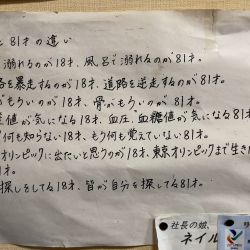 と81才の違い
溺れるのが18才、風呂で溺れるのが81才。
路を暴走するのが18才、道路を逆走するのが81才。
がもろいのが18才、骨がもろいのが81才。
差値が気になる18才、血圧、血糖値が気になる81才
だ何も知らない18才、もう何も覚えていない81才。
オリンピックに出たいと思うのが18才、東京オリンピックまで生き
才。
探しをしてる18才、皆が自分を探してる81才。
社長の娘、
ネイル